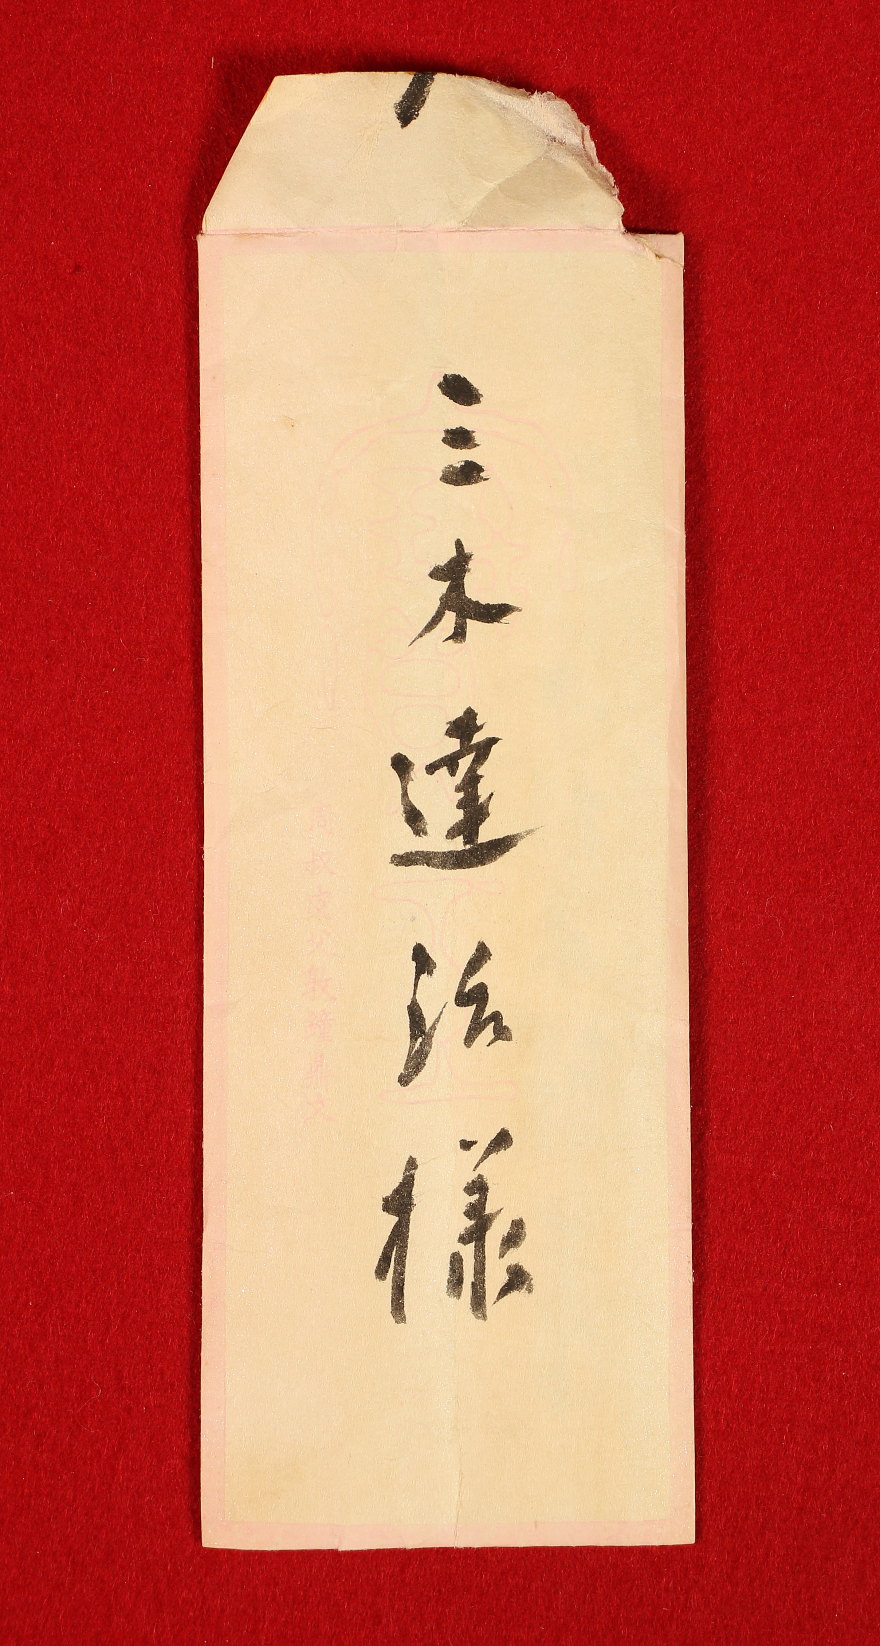 三木達治様